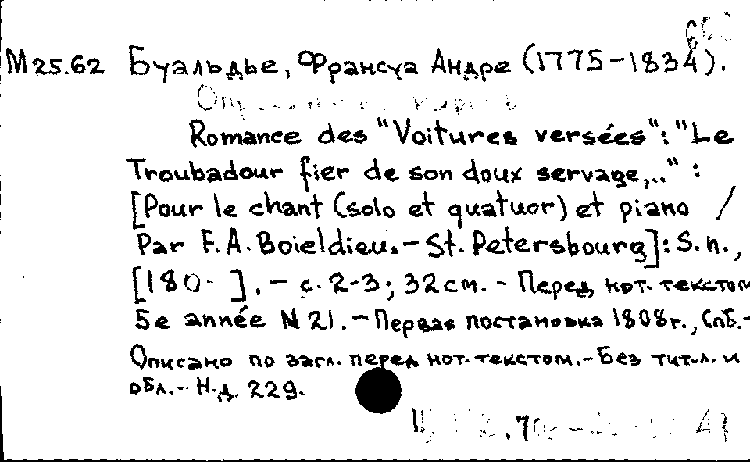 М25.62 Буальдье, Франсуа Андре (1775-1834).
Romance des "Voitures versées": "Le
Troubadour fier de son doux servage,.." :
[Pour le chant (solo et quatuor) et piano /
Par F.A. Boieldieu. - St. Petersbourg]: S.n.,
[180- ]. - с. 2-3; 32см. - Перед нот. текстом
5e année N 21. - Первая постановка 1808г., Спб. -
Описано по загл. перед нот. текстом. - Без тит.л. и
обл. - Н.д. 229.